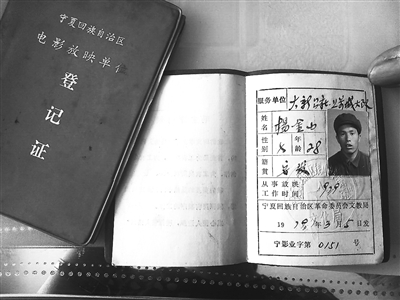 宁夏回族自治区
电影放映单位
登记证
服务单位 大新公社
姓名 杨金山
性别 男 年龄 28
籍贯
从事放映工作时间 1979
宁夏回族自治区革命委员会文教局
1979年3月5日发
宁影业字第0151号